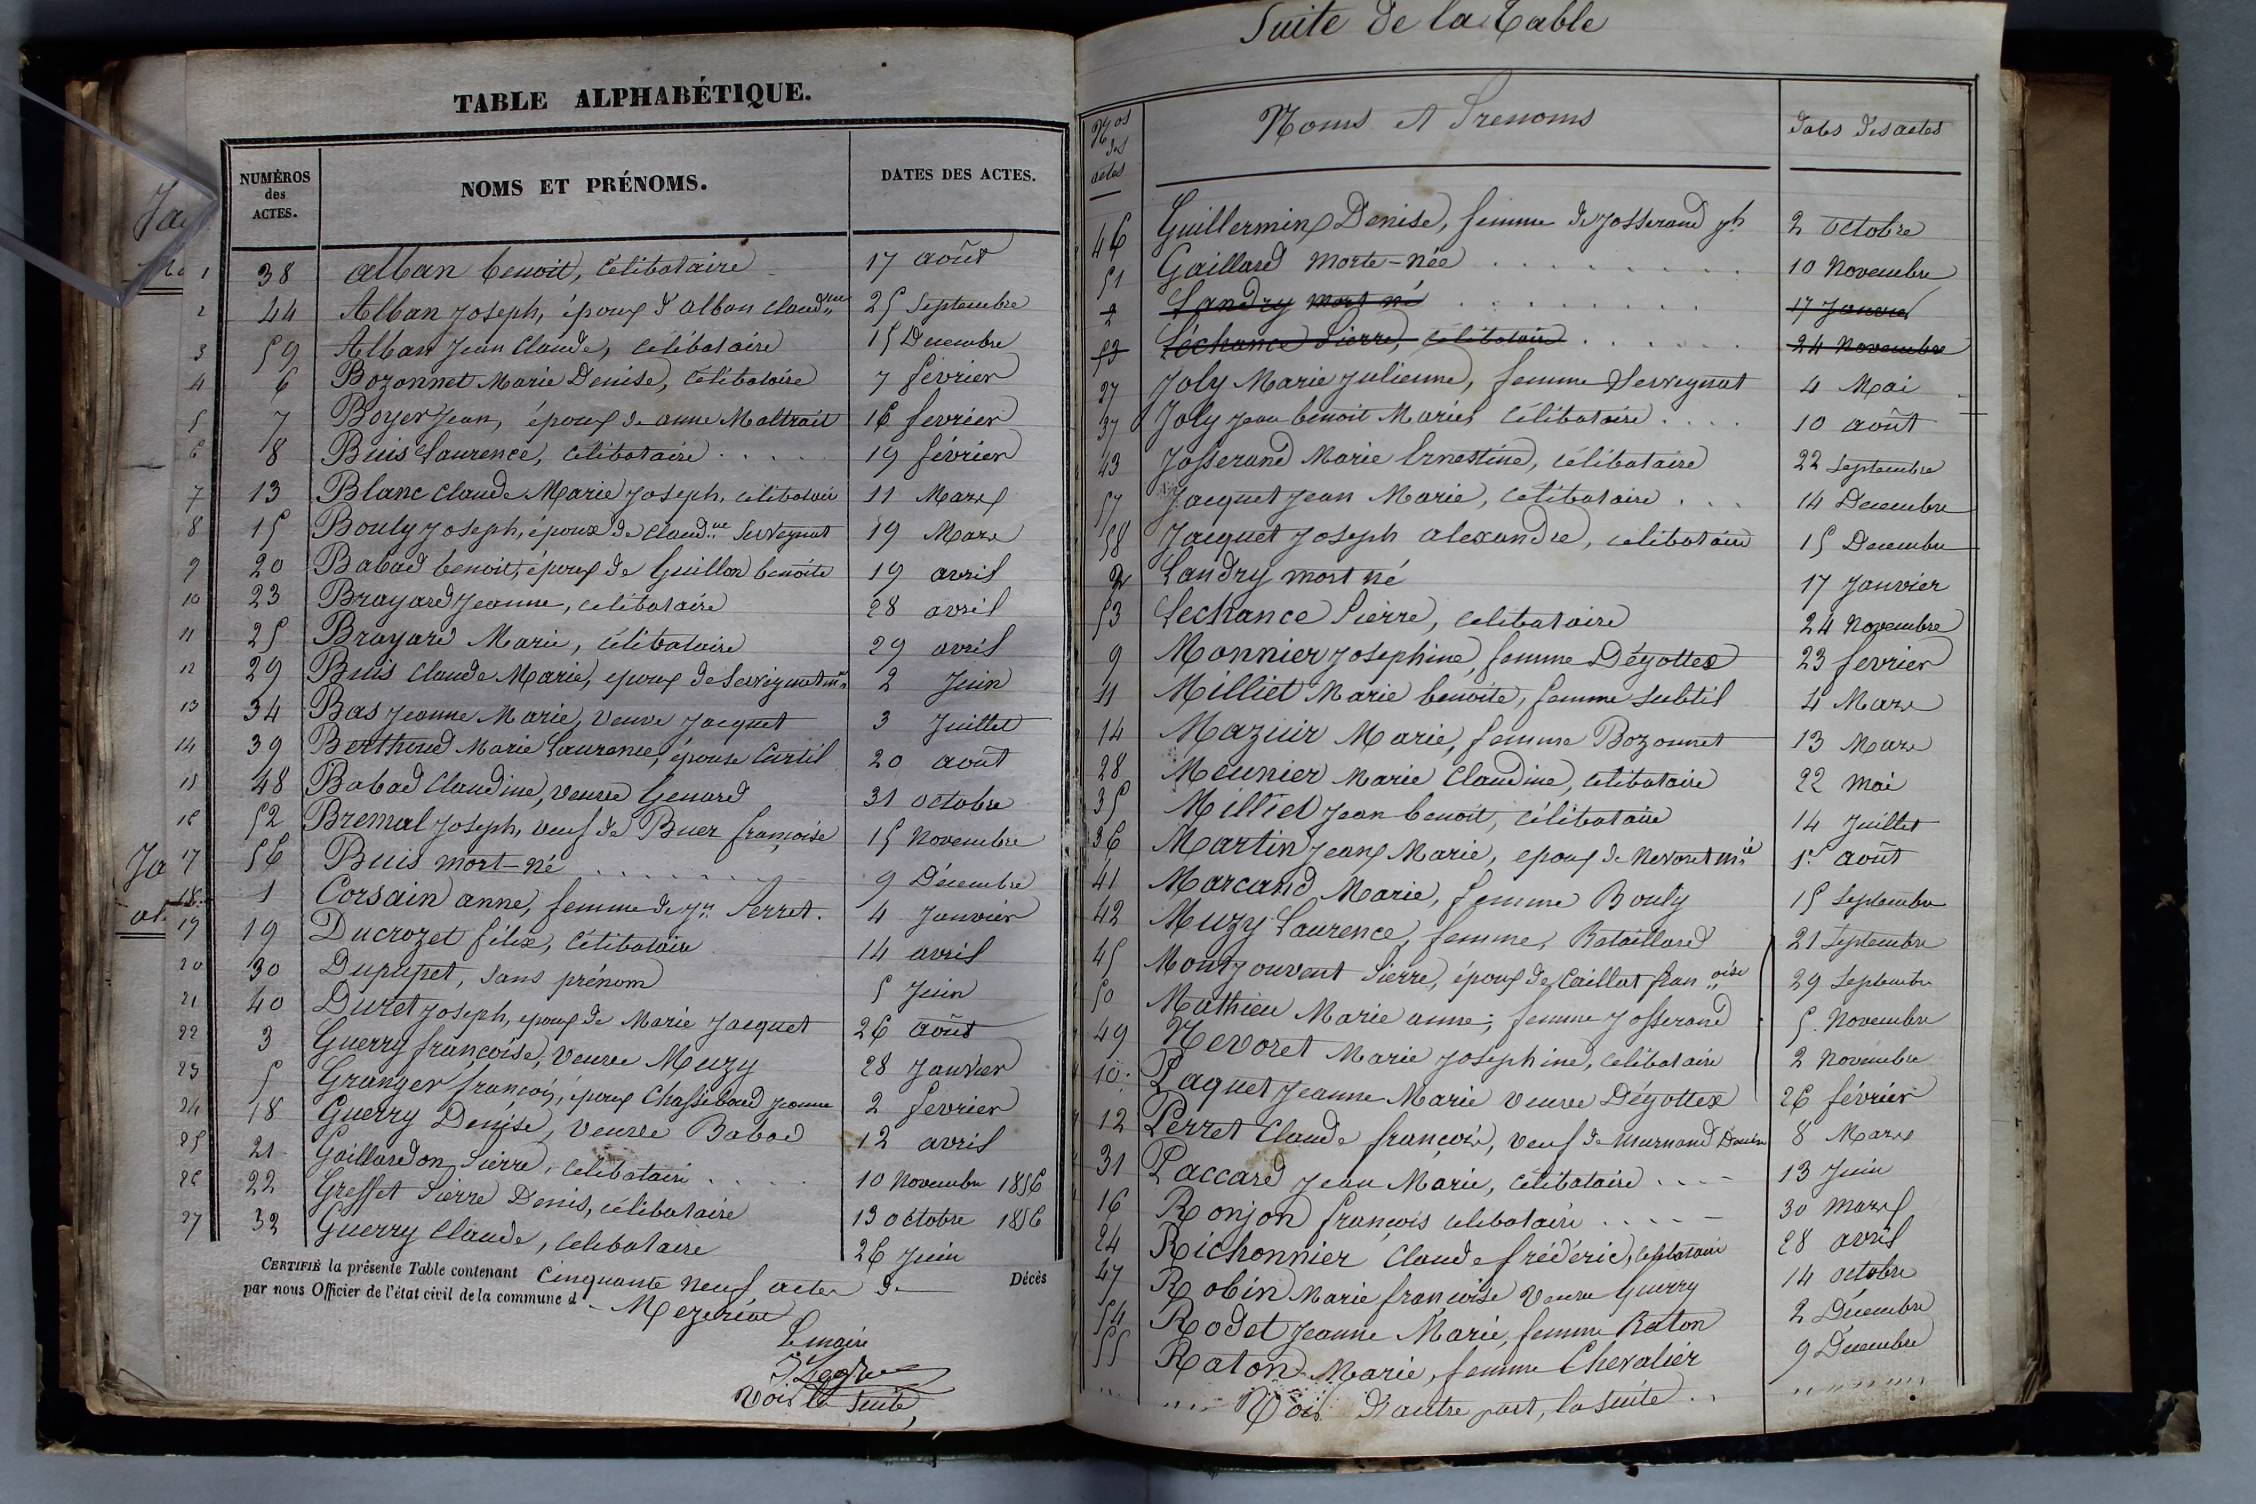 TABLE ALPHABÉTIQUE.
NUMÉROS des ACTES. NOMS ET PRÉNOMS. DATES DES ACTES.
1 38 Alban benoit, célibataire 17 août
2 44 Alban Joseph, époux d'Alban Claudne 25 Septembre
3 59 Alban Jean Claude, célibataire 15 Decembre
4 6 Bozonnet Marie Denise, célibataire 7 février
5 7 Boyer Jean, époux de anne Maltrait 16 fevrier
6 8 Buis Laurence, célibataire 19 février
7 13 Blanc Claude Marie Joseph, célibataire 11 Mars
8 15 Bouly Joseph, époux de Claudne Servignat 19 Mars
9 20 Babad benoit, époux de Guillon benoite 19 avril
10 23 Brayard Jeanne, célibataire 28 avril
11 25 Brayard Marie, célibataire 29 avril
12 29 Buis Claude Marie, epoux de Servignat mie 2 Juin
13 34 Bas Jeanne Marie, veuve Jacquet 3 Juillet
14 39 Berthoud Marie Laurence, épouse Curtil 20 août
15 48 Babad Claudine, veuve Genard 31 octobre
16 52 Bremal Joseph, veuf de Buer françoise 15 Novembre
17 56 Buis mort-né 9 Décembre
18 1 Corsain anne, femme de Jn Perret. 4 Janvier
19 19 Ducrozet félix, célibataire 14 avril
20 30 Dupupet, sans prénom 5 Juin
21 40 Duret Joseph, epoux de Marie Jacquet 26 août
22 3 Guerry françoise, veuve Muzy 28 Janvier
23 5 Granger françois, époux Chassibaud Jeanne 2 fevrier
24 18 Guerry Denise, veuve Babad 12 avril
25 21 Gaillardon Pierre, célibataire 10 Novembre 1856
26 22 Greffet Pierre Denis, célibataire 13 octobre 1856
27 32 Guerry Claude, célibataire 26 Juin
CERTIFIÉ la présente Table contenant Cinquante neuf actes de Décès
par nous Officier de l'état civil de la commune d Mezeriat
Le maire
Voir la suite,
Suite de la Table
Nos des actes Noms et Prenoms dates des actes
46 Guillermin Denise, femme de Josserand Jh 2 octobre
51 Gaillard morte-née 10 Novembre
2 Landry mort né 17 Janvier
53 Léchance Pierre, célibataire 24 Novembre
27 Joly Marie Julienne, femme Servignat 4 Mai
37 Joly Jean benoit Marie, célibataire 10 août
43 Josserand Marie Ernestine, célibataire 22 Septembre
57 Jacquet Jean Marie, célibataire 14 Decembre
58 Jacquet Joseph alexandre, célibataire 15 Decembre
2 Landry mort né 17 Janvier
53 Lechance Pierre, célibataire 24 Novembre
9 Monnier Josephine, femme Dégottex 23 fevrier
11 Milliet Marie benoite, femme Subtil 4 Mars
14 Mazuir Marie, femme Bozonnet 13 Mars
28 Meunier Marie Claudine, célibataire 22 mai
35 Milliet Jean benoit, célibataire 14 Juillet
36 Martin Jean Marie, epoux de Nevoret mie 1r août
41 Marcand Marie, femme Bouly 15 Septembre
42 Muzy Laurence, femme, Rataillard 21 Septembre
45 Montjouvent Pierre, époux de Caillat françoise 29 Septembre
50 Mathieu Marie anne; femme Josserand 5. Novembre
49 Nevoret Marie Josephine, célibataire 2 Novembre
10. Paquet Jeanne Marie veuve Dégottex 26 février
12 Perret Claude françois, veuf de Murnand Denise 8 Mars
31 Paccard Jean Marie, célibataire 13 Juin
16 Ronjon françois célibataire 30 Mars
24 Richonnier Claude frédéric, célibataire 28 avril
47 Robin Marie françoise veuve Guerry 14 octobre
54 Rodet Jeanne Marie, femme Raton 2 Décembre
55 Raton Marie, femme Chevalier 9 Decembre
Voir d'autre part, la suite